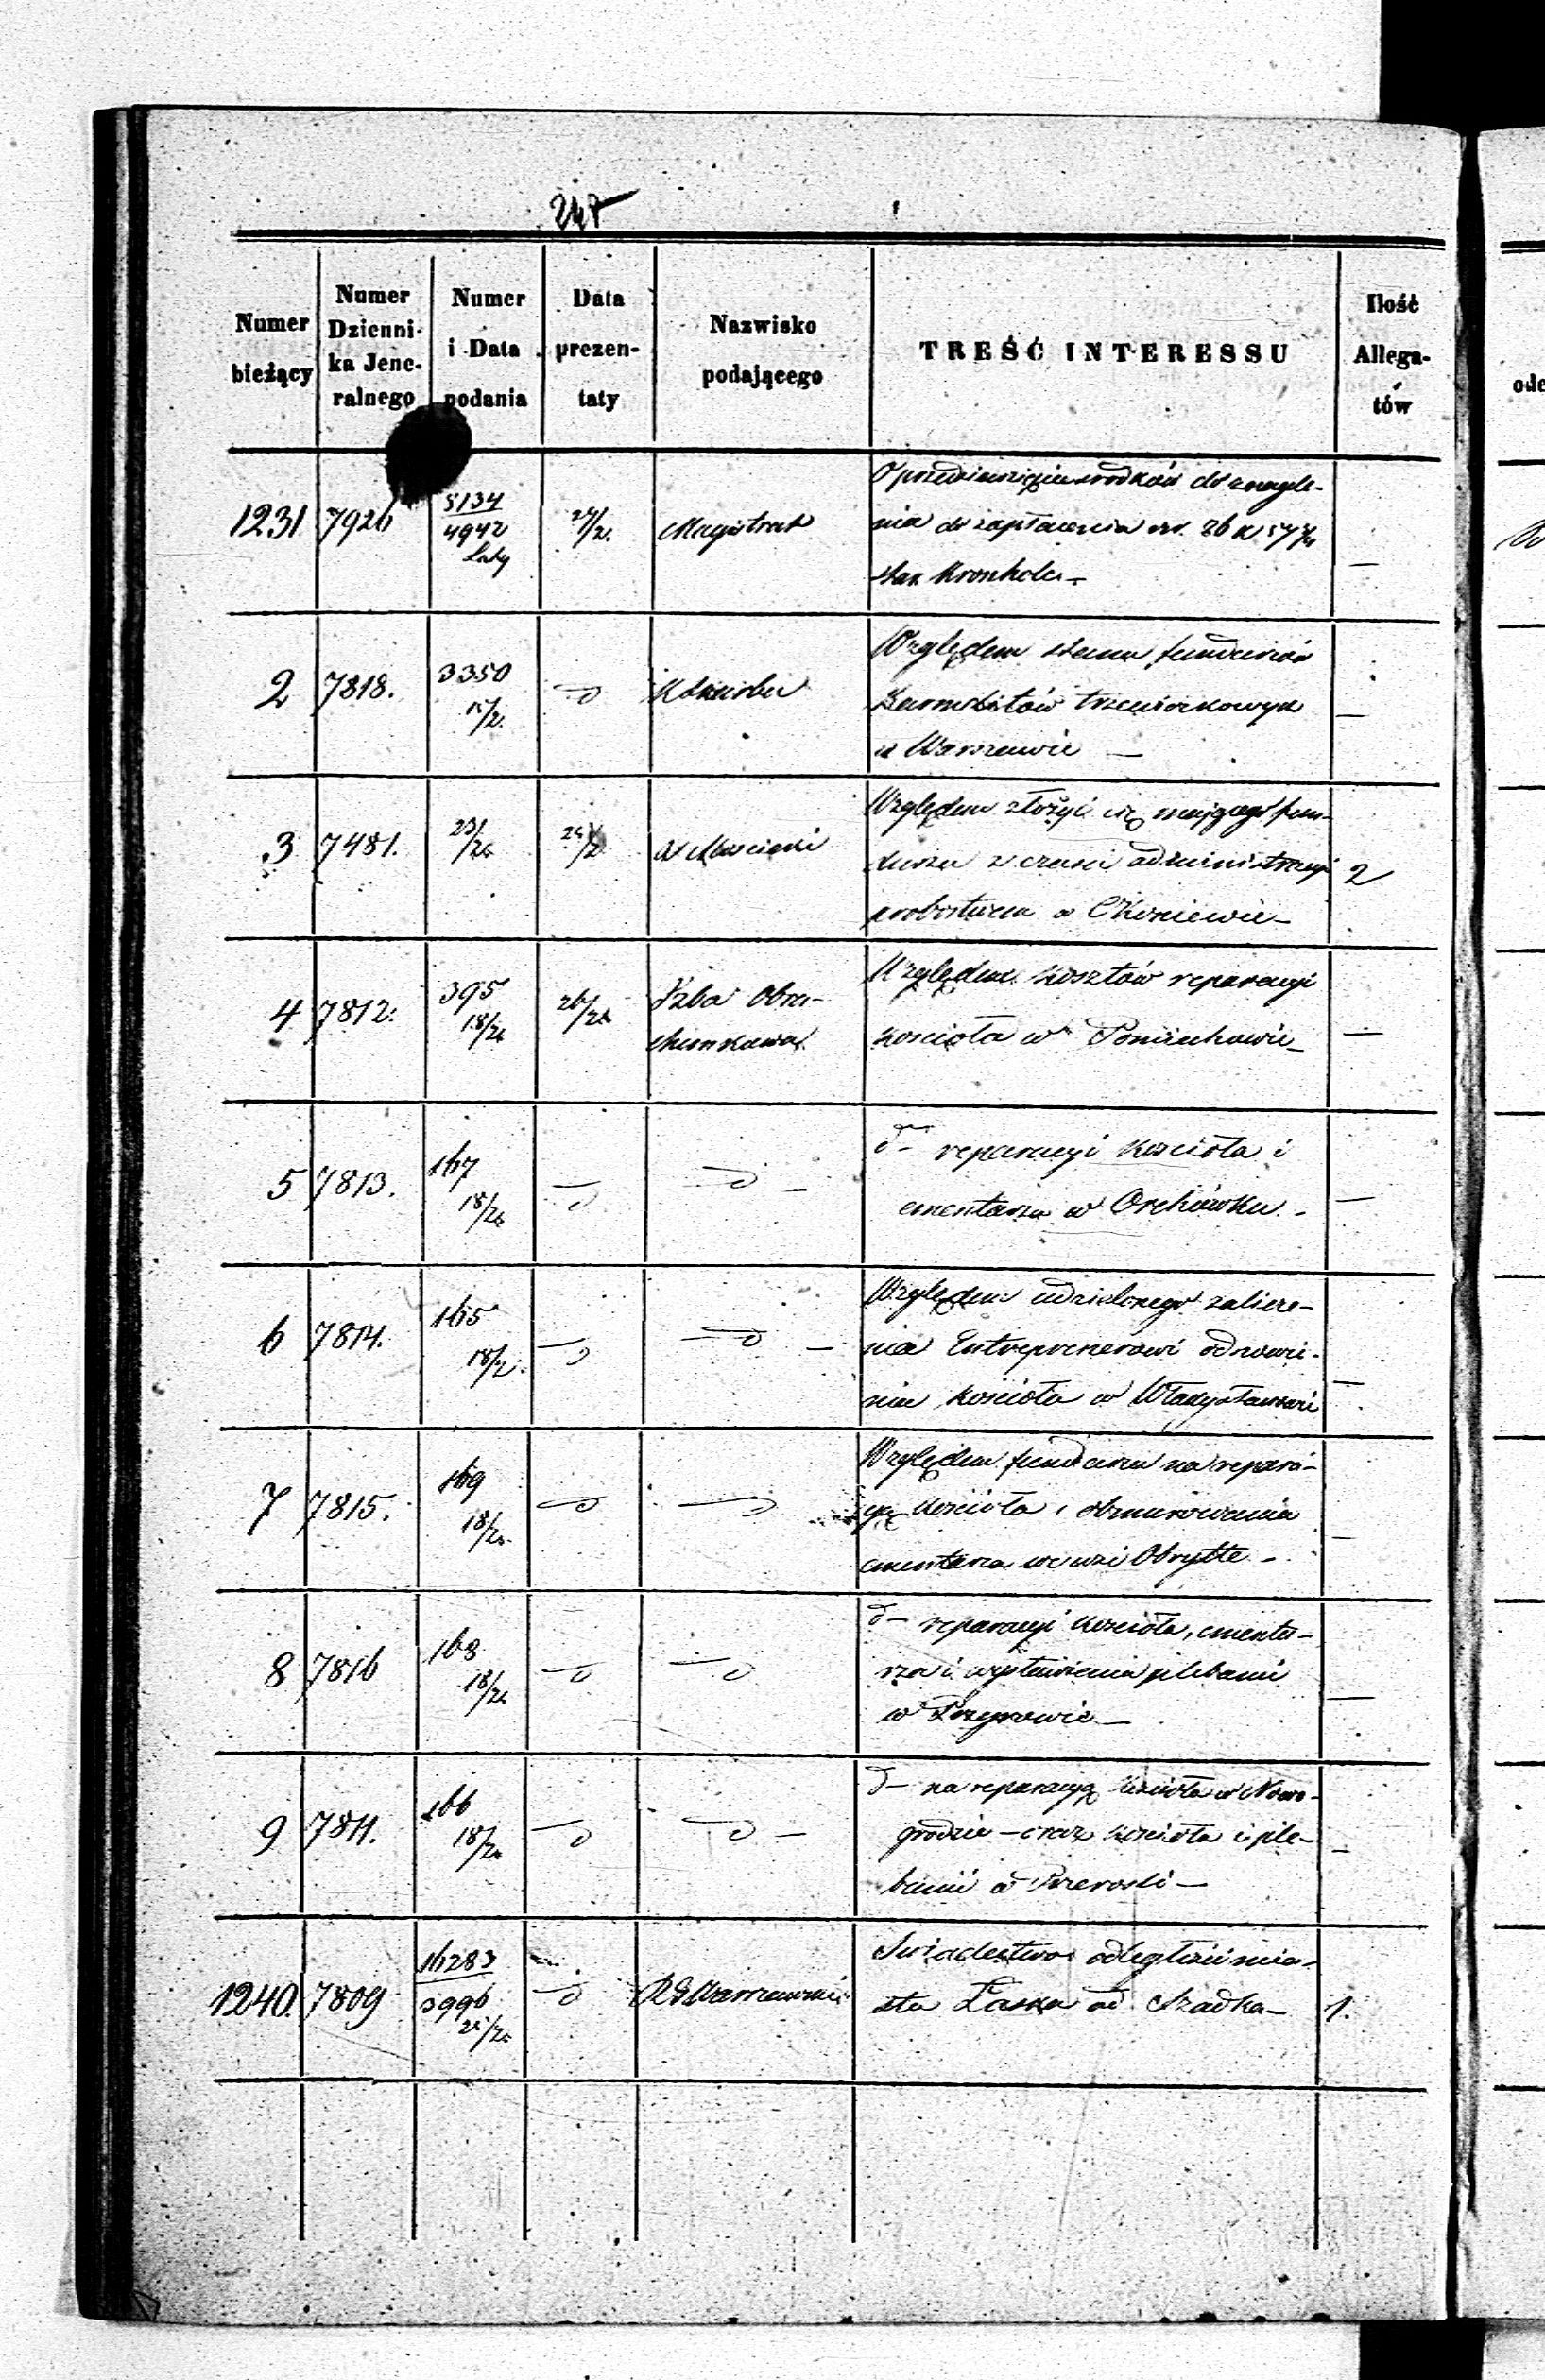 248
Numer bieżący
Numer Dzienni-ka Jene-ralnego
Numer i Data podania
Data prezen-taty
Nazwisko podającego
TREŚĆ INTERESSU
Ilość Allega-tów
1231 7926 5134 4942 Magistrat
O przedsięwzięcie środków do znagle-
nia do zapłacenia
—
2 7818. 3350
Względem stanu funduszów
Karmelitów trzewiczkowych
w Warszawie —
3 7481. 23/2
Względem złożyć się mającego fun-
duszu z czasu administracyi 2
probostwa w
4 7812. 395 18/2 26/2 Izba Obra-
chunkowa
Względem kosztów reparacyi
kościoła w Pomiechowie —
5 7813. 167 18/2
d- reparacyi kościoła i
cmentarza w Orchówku. —
6 7814. 165 18/2
Względem udzielonego zalicze-
nia Entreprenerowi odnowie-
nia kościoła w Władysławowie
7 7815. 169 18/2
Względem funduszu na repara-
cyę kościoła i obmurowania
cmentarza we wsi Obrytte —
8 7816 168 18/2
d- reparacyi kościoła, cmenta-
rza i wystawienia plebanii
w
9 7811. 166 18/2
d- na reparacyą kościoła w Nowo-
grodzie — oraz kościoła i ple-
banii w Przerośli —
1240. 7809 16283 3996 RG Warszawski
Świadectwo odległości mia-
sta Łaska od Szadka — 1.